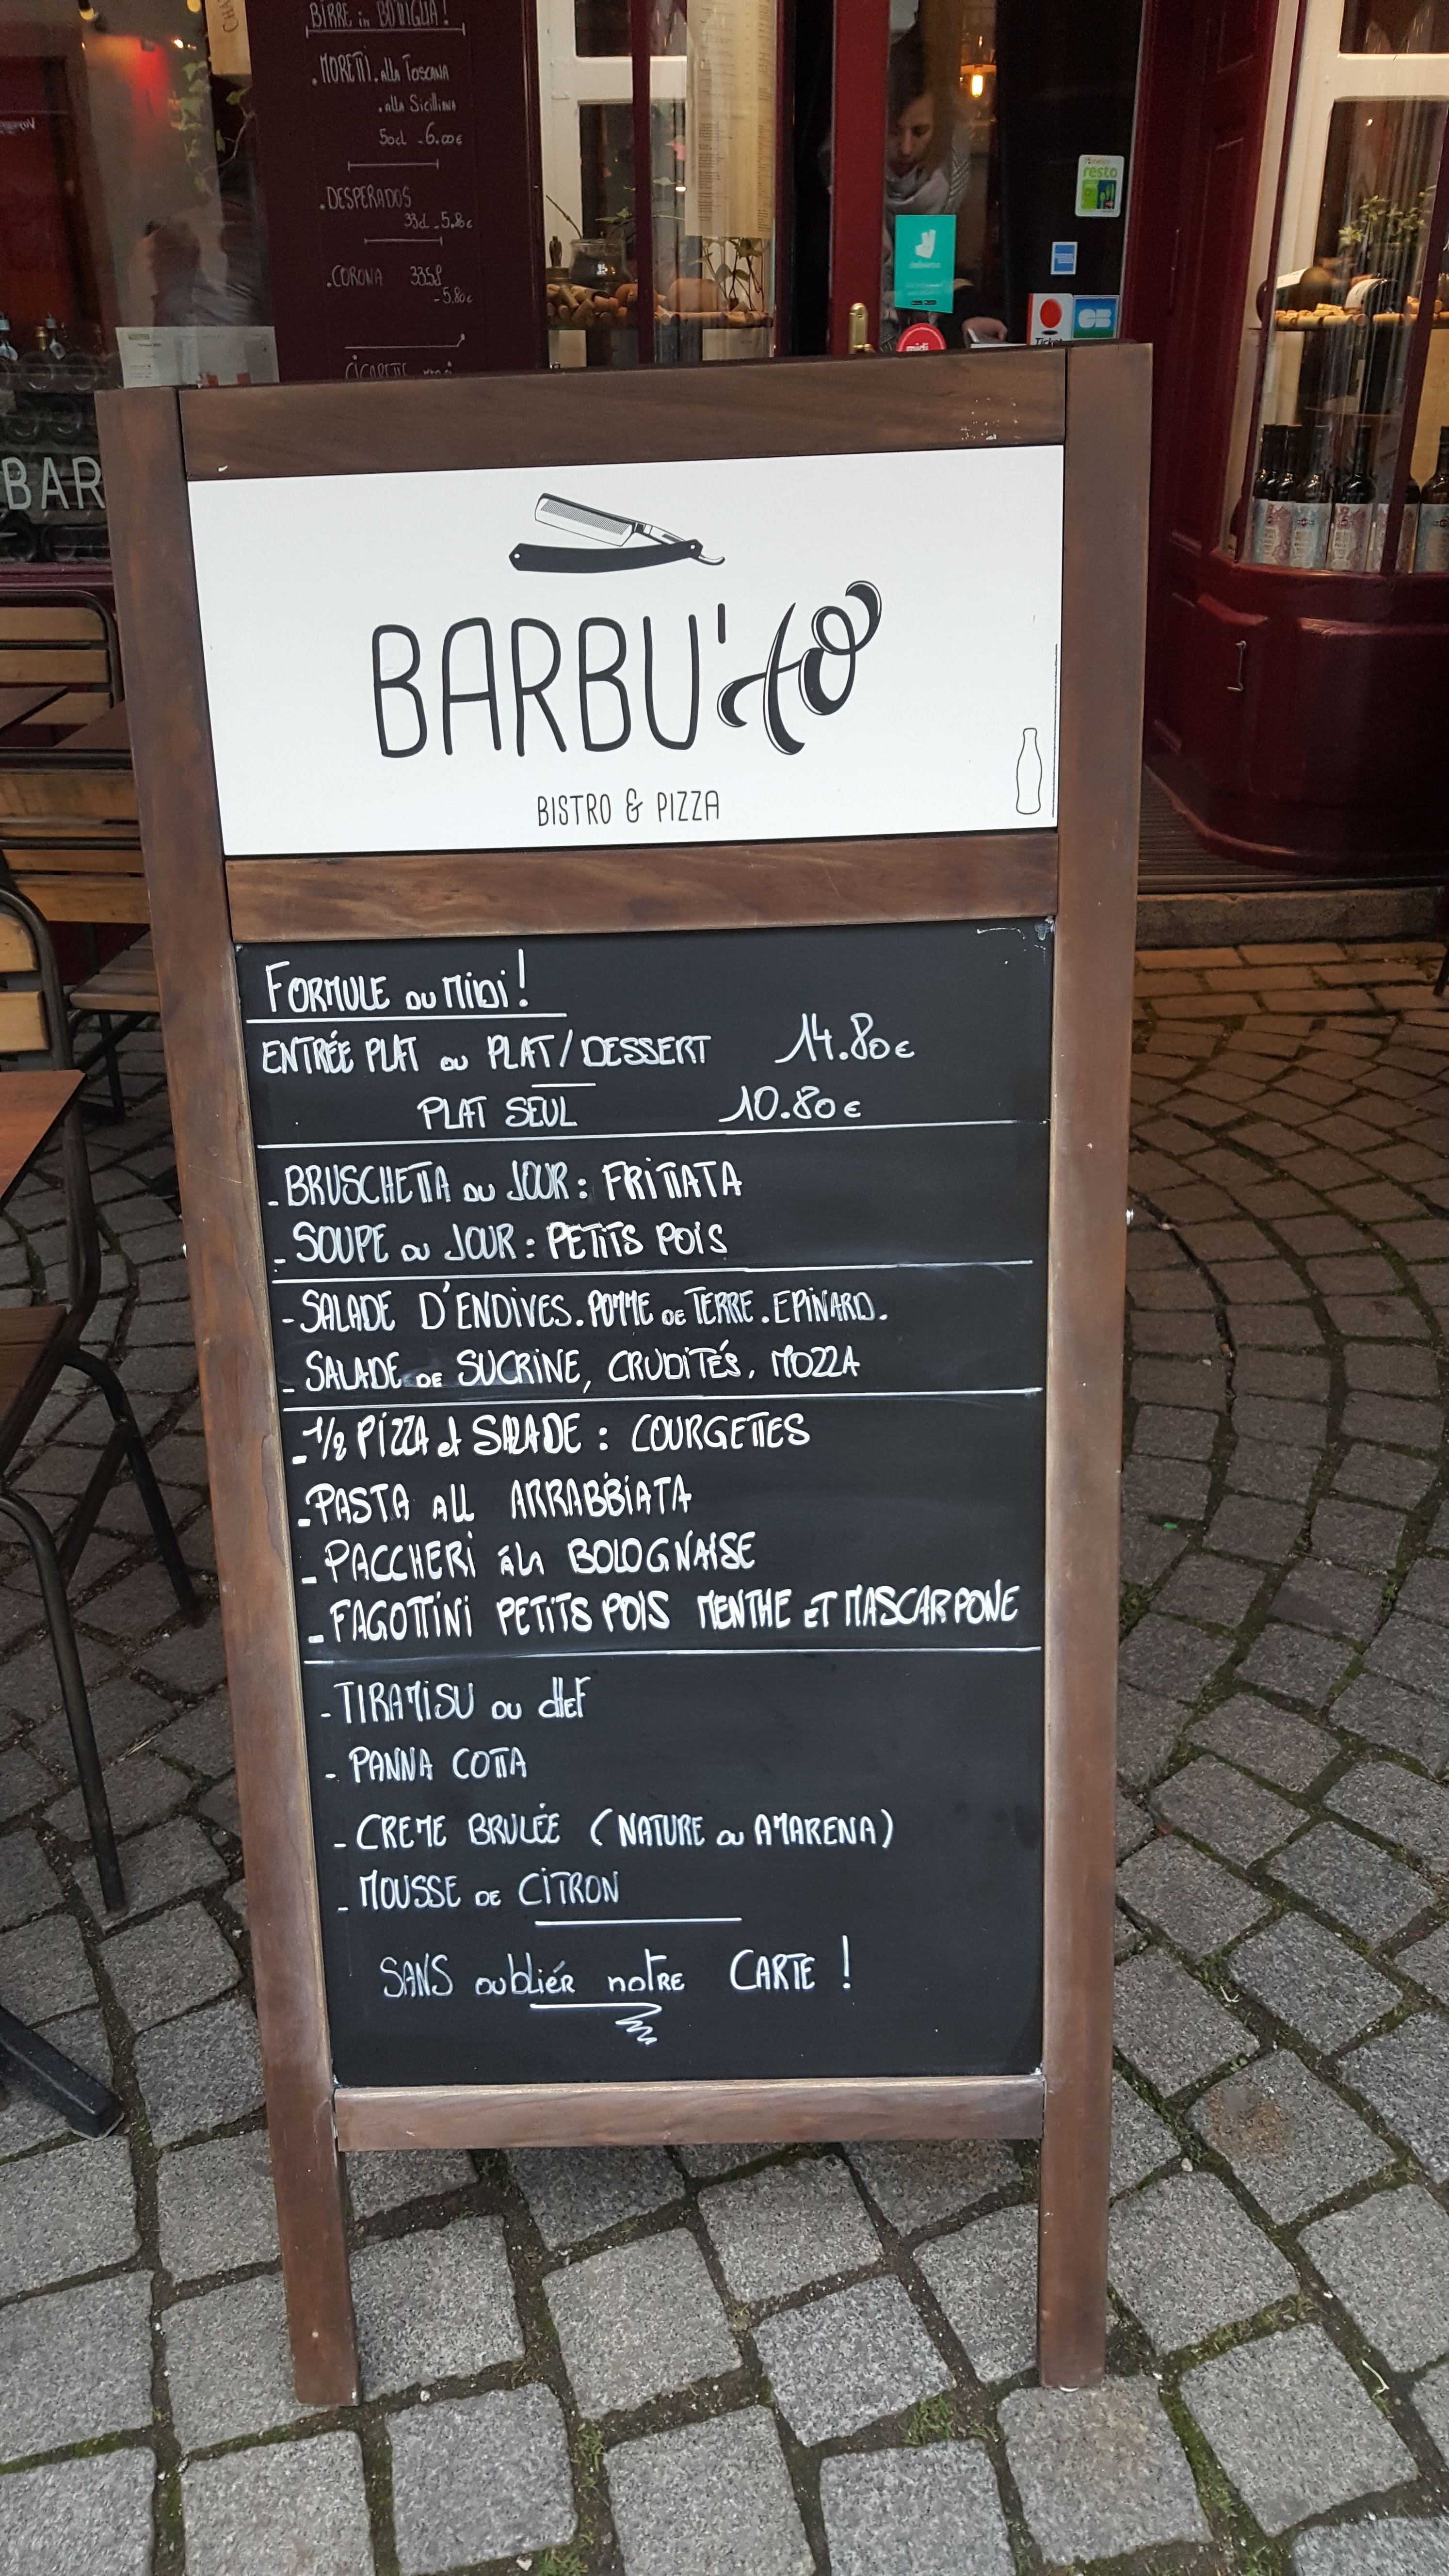 BIRRE in BOTTIGLIA !
. MORETTI . alla TOSCANA
. alla Sicilliana
50cl - 6.00€
. DESPERADOS
33cl - 5.80€
. CORONA
- 5.80€
resto
BAR
CB
midi
BARBU'to
BISTRO & PIZZA
FORMULE DU MIDI !
ENTRÉE PLAT OU PLAT / DESSERT 14.80€
PLAT SEUL 10.80€
- BRUSCHETTA DU JOUR : FRITTATA
- SOUPE DU JOUR : PETITS POIS
- SALADE D'ENDIVES . POMME DE TERRE . EPINARD .
- SALADE DE SUCRINE, CRUDITÉS . MOZZA
- 1/2 PIZZA et SALADE : COURGETTES
- PASTA ALL ARRABBIATA
- PACCHERI à la BOLOGNAISE
- FAGOTTINI PETITS POIS MENTHE ET MASCARPONE
- TIRAMISU DU CHEF
- PANNA COTTA
- CREME BRULÉE (NATURE OU AMARENA)
- MOUSSE DE CITRON
SANS oubliér notre CARTE !